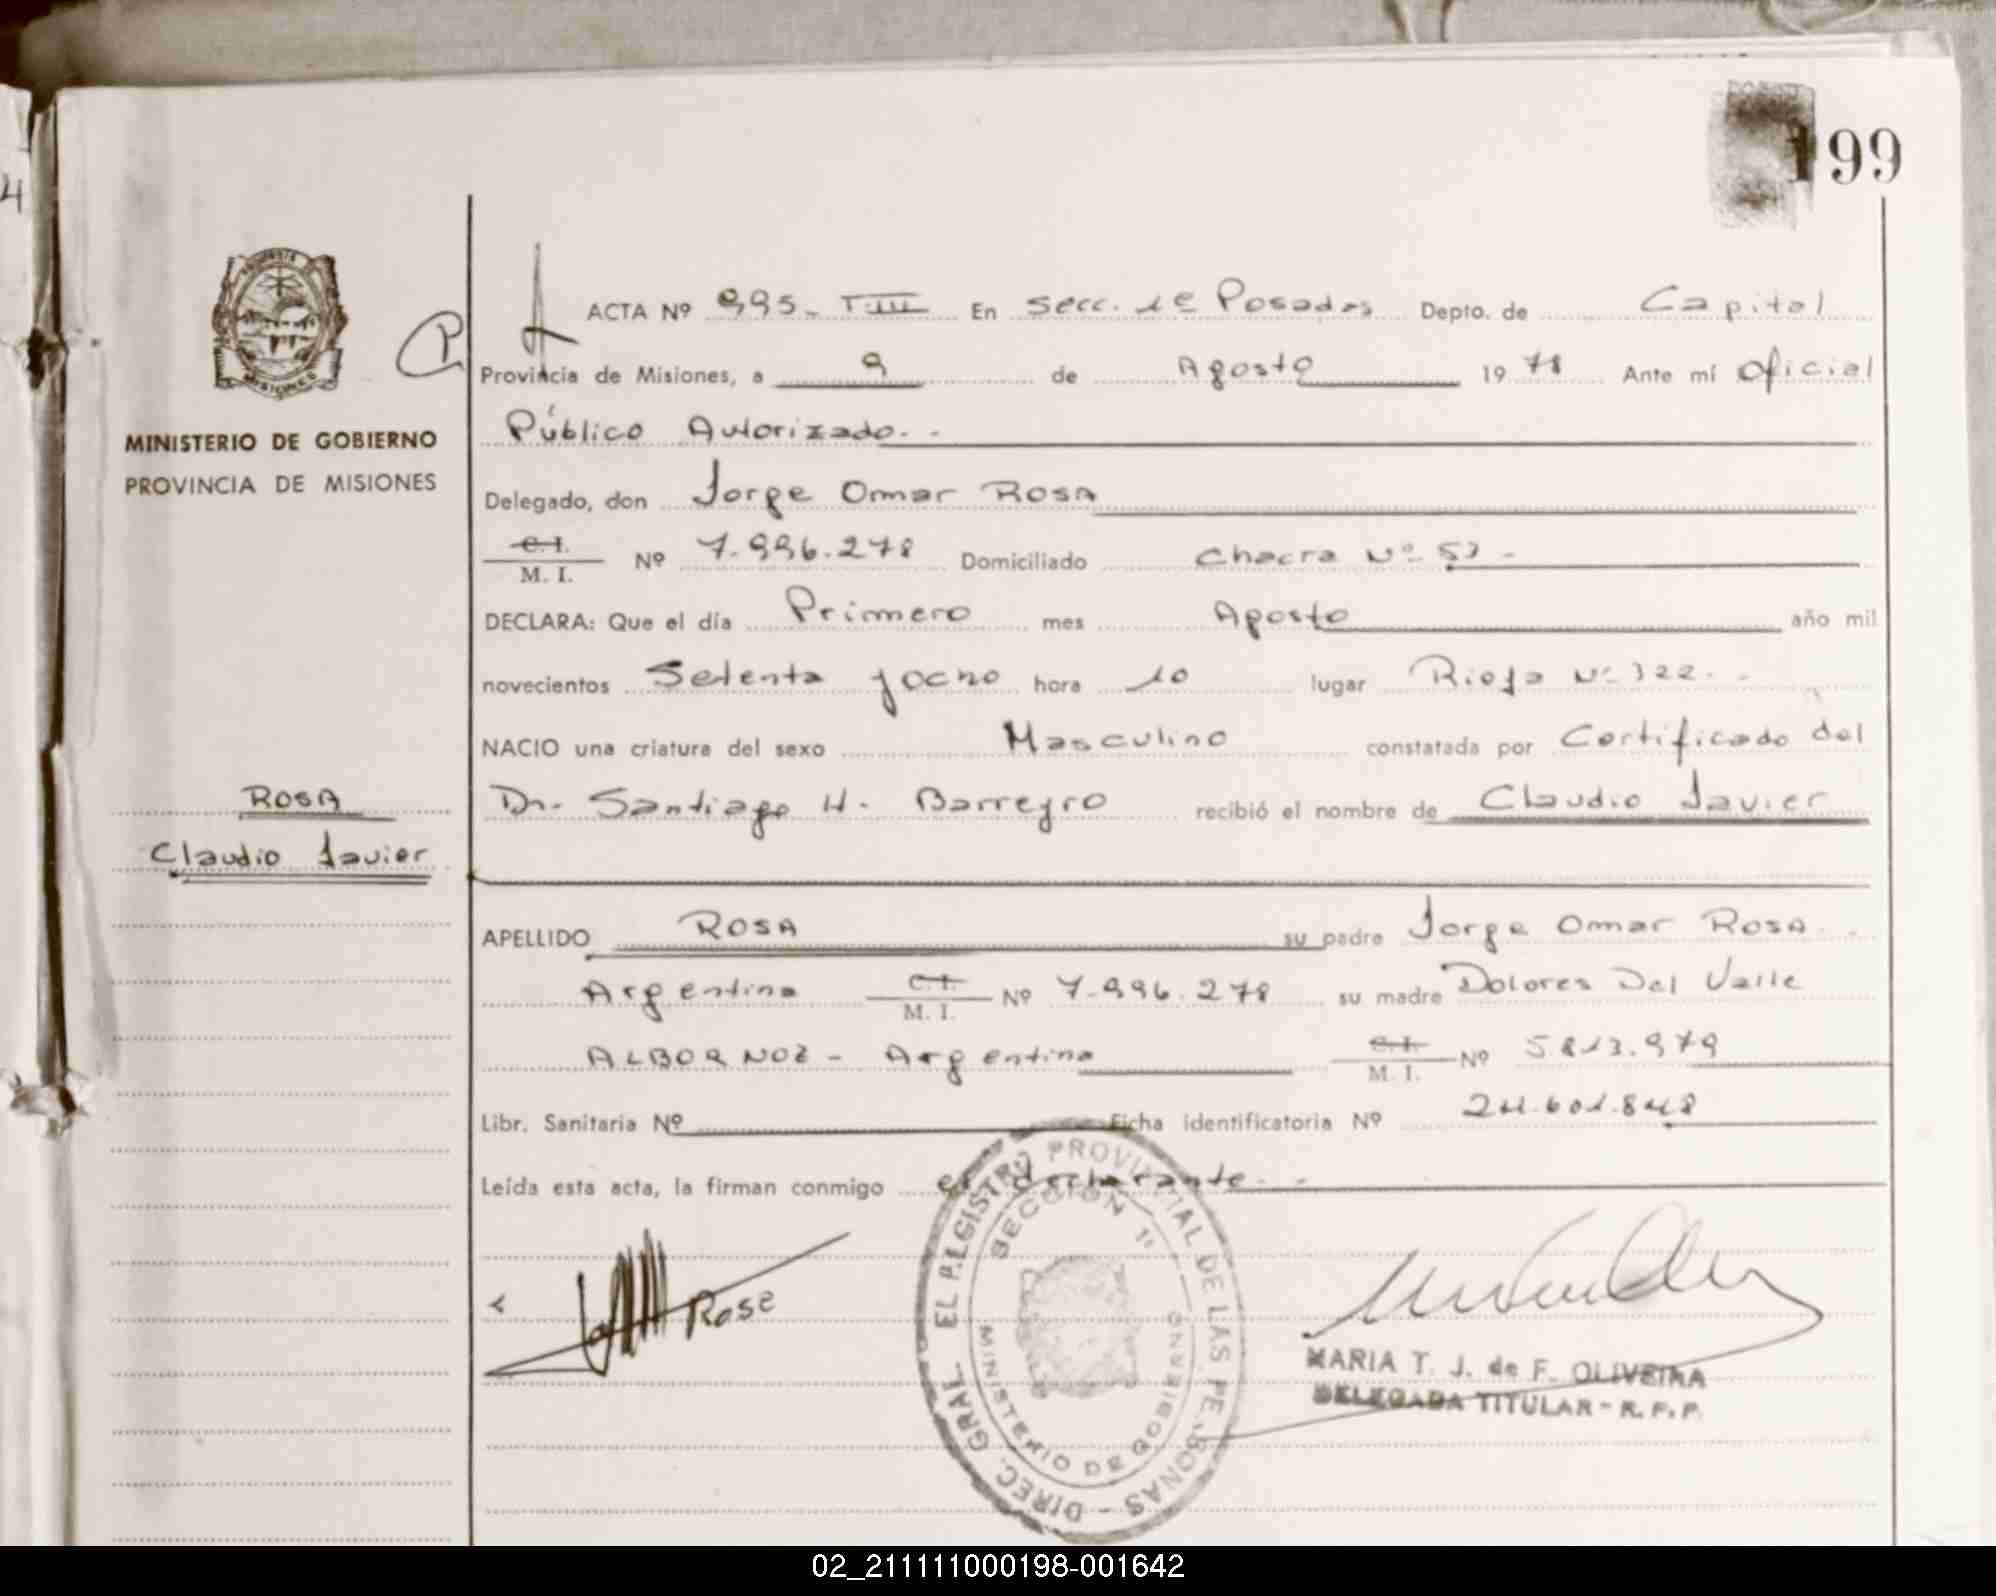 199
4
ACTA Nº 995 - T III En Secc. 1º Posadas Depto. de Capital
Provincia de Misiones, a 9 de Agosto 1978 Ante mí Oficial
Público Autorizado. -
MINISTERIO DE GOBIERNO
PROVINCIA DE MISIONES
Delegado, don Jorge Omar ROSA
C. I.
M. I. Nº 7.996.278 Domiciliado Chacra Nº 57 -
DECLARA: Que el día Primero mes Agosto año mil
novecientos Setenta y ocho hora 10 lugar Rioja Nº 322. -
NACIO una criatura del sexo Masculino constatada por Certificado del
Dr. Santiago H. Barreyro recibió el nombre de Claudio Javier
ROSA
Claudio Javier
APELLIDO ROSA su padre Jorge Omar ROSA -
Argentina C. I. M. I. Nº 7.996.278 su madre Dolores Del Valle
ALBORNOZ - Argentina C. I. M. I. Nº 5813.979
Libr. Sanitaria Nº Ficha identificatoria Nº 24.601.848
Leída esta acta, la firman conmigo el declarante. -
Rosa
DIREC. GRAL. EL REGISTRO PROVINCIAL DE LAS PERSONAS -
SECCION 1ª
MINISTERIO DE GOBIERNO
MARIA T. J. de F. OLIVEIRA
DELEGADA TITULAR - R. P. P.
02_211111000198-001642